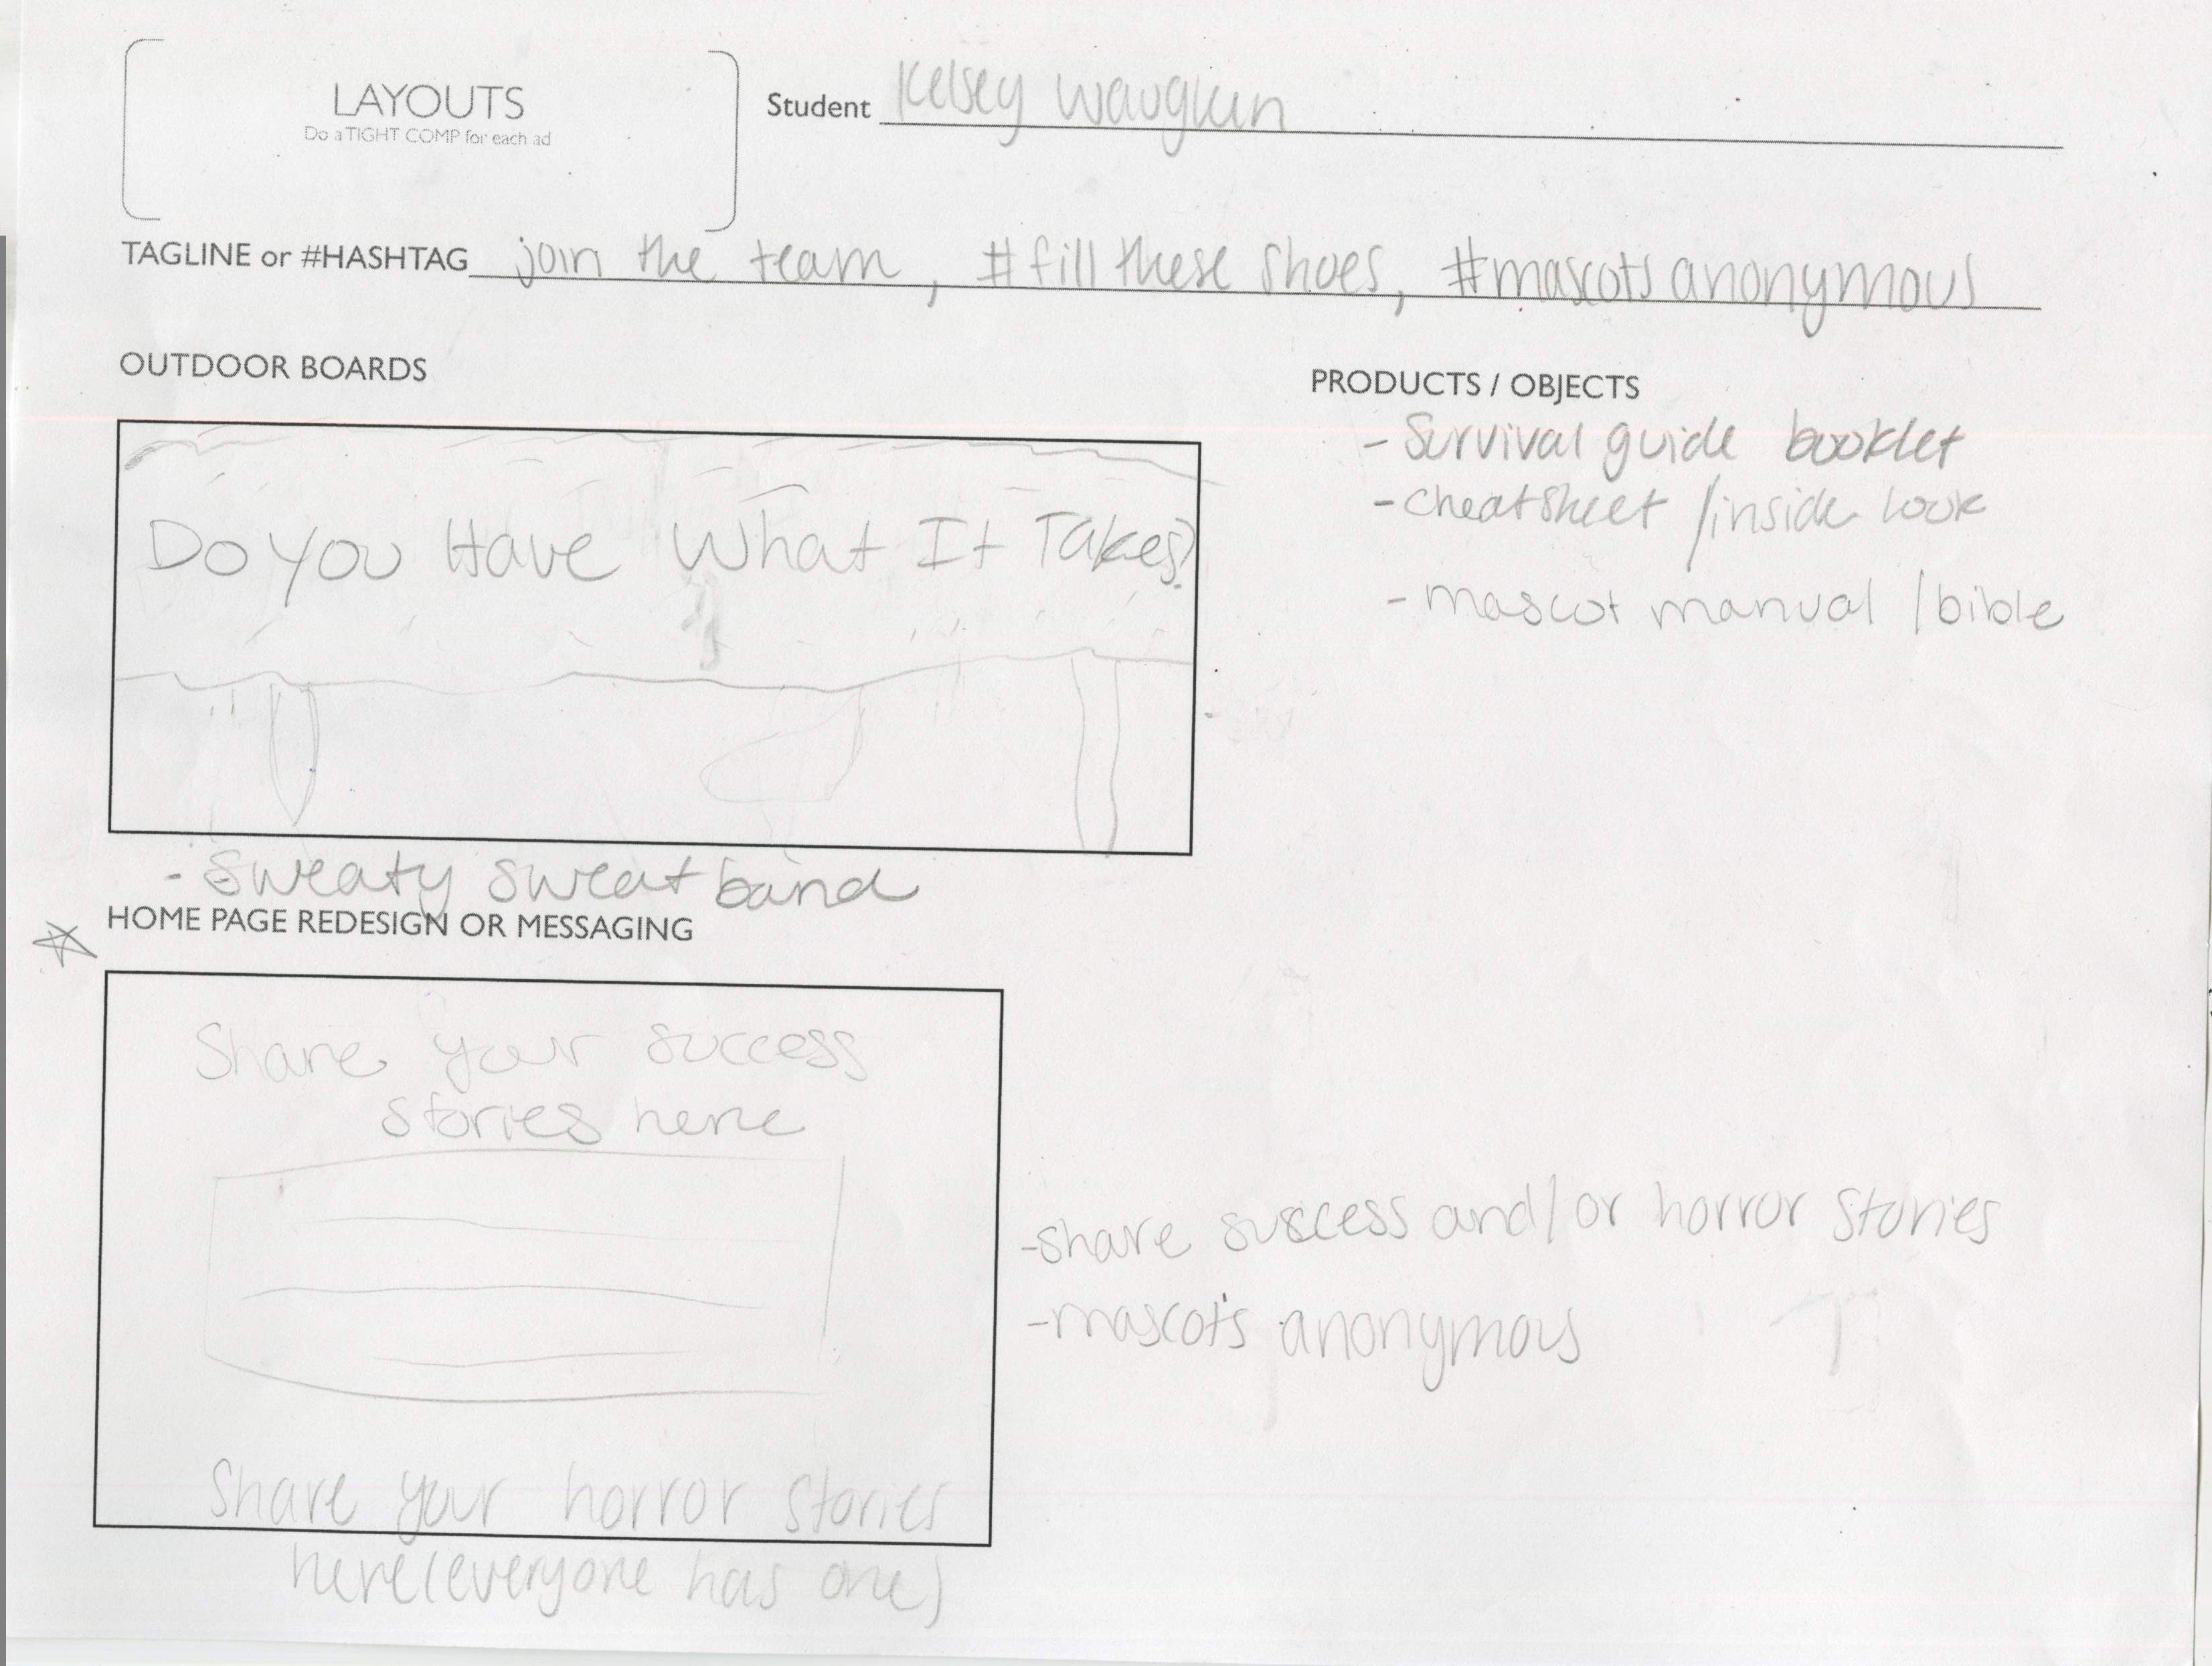 LAYOUTS
Do a TIGHT COMP for each ad
Student Kelsey
TAGLINE or #HASHTAG join the team, #fill these shoes, #mascots anonymous
OUTDOOR BOARDS
Do You Have What It Takes?
- Sweaty sweat band
PRODUCTS / OBJECTS
- Survival guide booklet
- cheat sheet / inside look
- mascot manual / bible
HOME PAGE REDESIGN OR MESSAGING
Share your success
stories here
Share your horror stories
here (everyone has one)
- share success and/or horror stories
- mascots anonymous